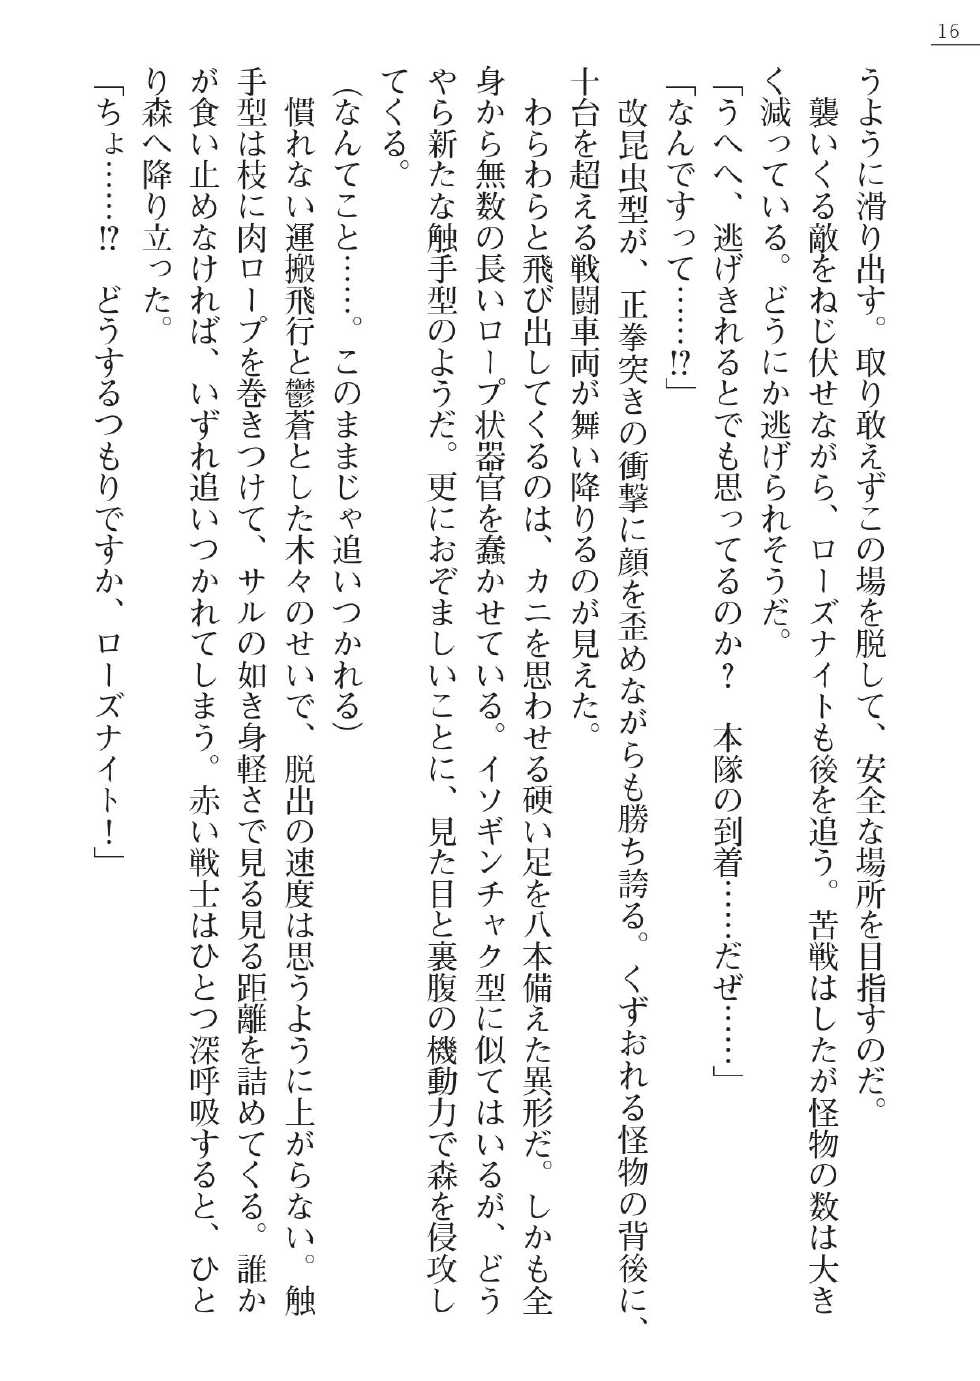 16
うように滑り出す。取り敢えずこの場を脱して、安全な場所を目指すのだ。
　襲いくる敵をねじ伏せながら、ローズナイトも後を追う。苦戦はしたが怪物の数は大き
く減っている。どうにか逃げられそうだ。
「うへへ、逃げきれるとでも思ってるのか？　本隊の到着……だぜ……」
「なんですって……!?」
　改昆虫型が、正拳突きの衝撃に顔を歪めながらも勝ち誇る。くずおれる怪物の背後に、
十台を超える戦闘車両が舞い降りるのが見えた。
　わらわらと飛び出してくるのは、カニを思わせる硬い足を八本備えた異形だ。しかも全
身から無数の長いロープ状器官を蠢かせている。イソギンチャク型に似てはいるが、どう
やら新たな触手型のようだ。更におぞましいことに、見た目と裏腹の機動力で森を侵攻し
てくる。
（なんてこと……。このままじゃ追いつかれる）
　慣れない運搬飛行と鬱蒼とした木々のせいで、脱出の速度は思うように上がらない。触
手型は枝に肉ロープを巻きつけて、サルの如き身軽さで見る見る距離を詰めてくる。誰か
が食い止めなければ、いずれ追いつかれてしまう。赤い戦士はひとつ深呼吸すると、ひと
り森へ降り立った。
「ちょ……!?　どうするつもりですか、ローズナイト！」